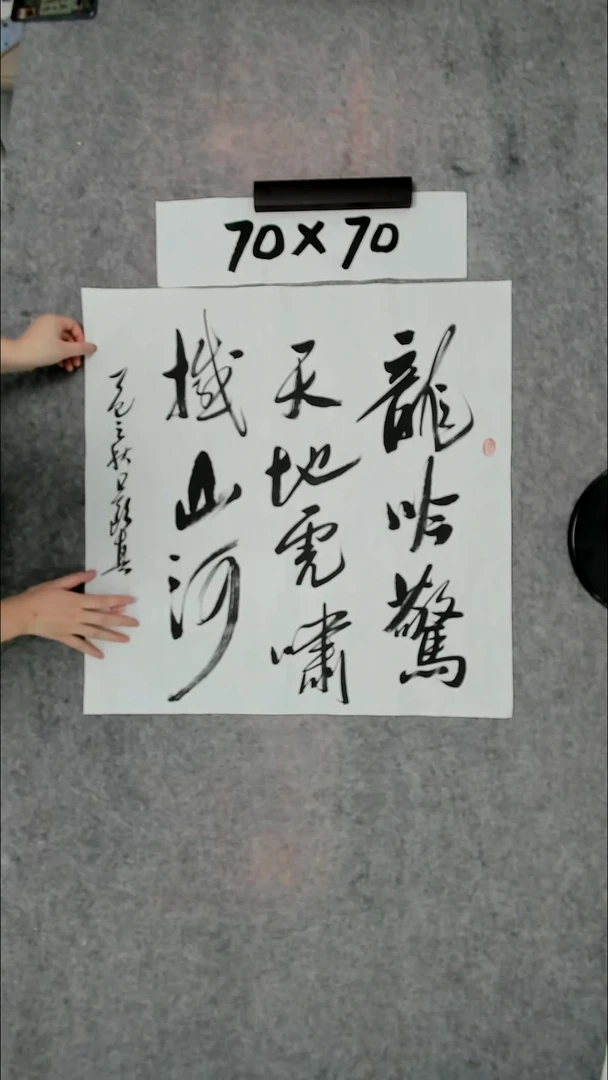 70×70
龍吟驚
天地虎嘯
撼山河
之秋日